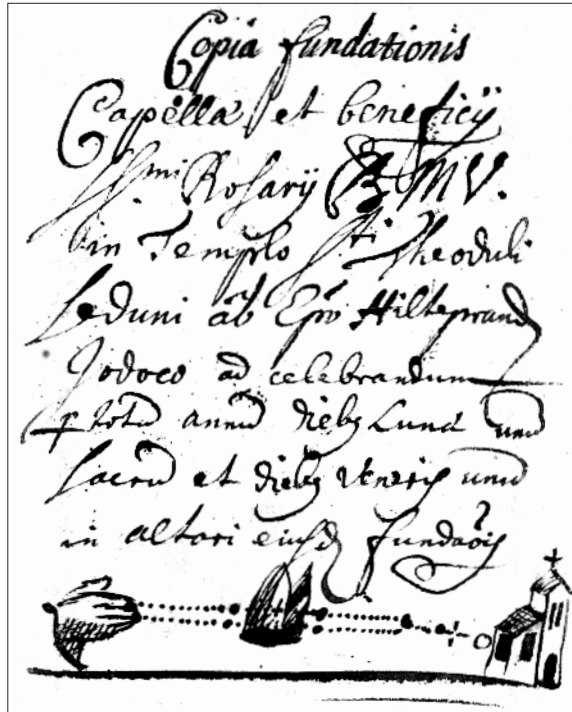 Copia fundationis
Capellæ et beneficij
SSmi Rosarij B M V.
in Templo Sti Theoduli
Seduni ab Epo Hilteprand
Jodoco ad celebrandum
p totũ annũ dieb9 Lunæ unũ
sacrũ et dieb9 Veneris unũ
in altari eiusd fundaõis